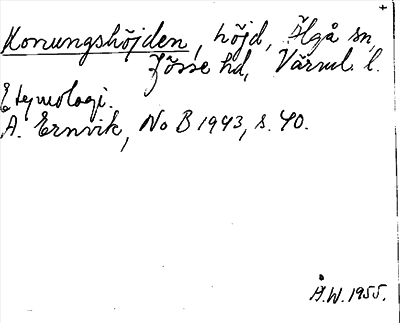 Konungshöjden, höjd, Älgå sn,
Jösse hd, Värml. l.
Etymologi.
A. Ernvik, No B 1943, s. 40.
Å.W. 1955.